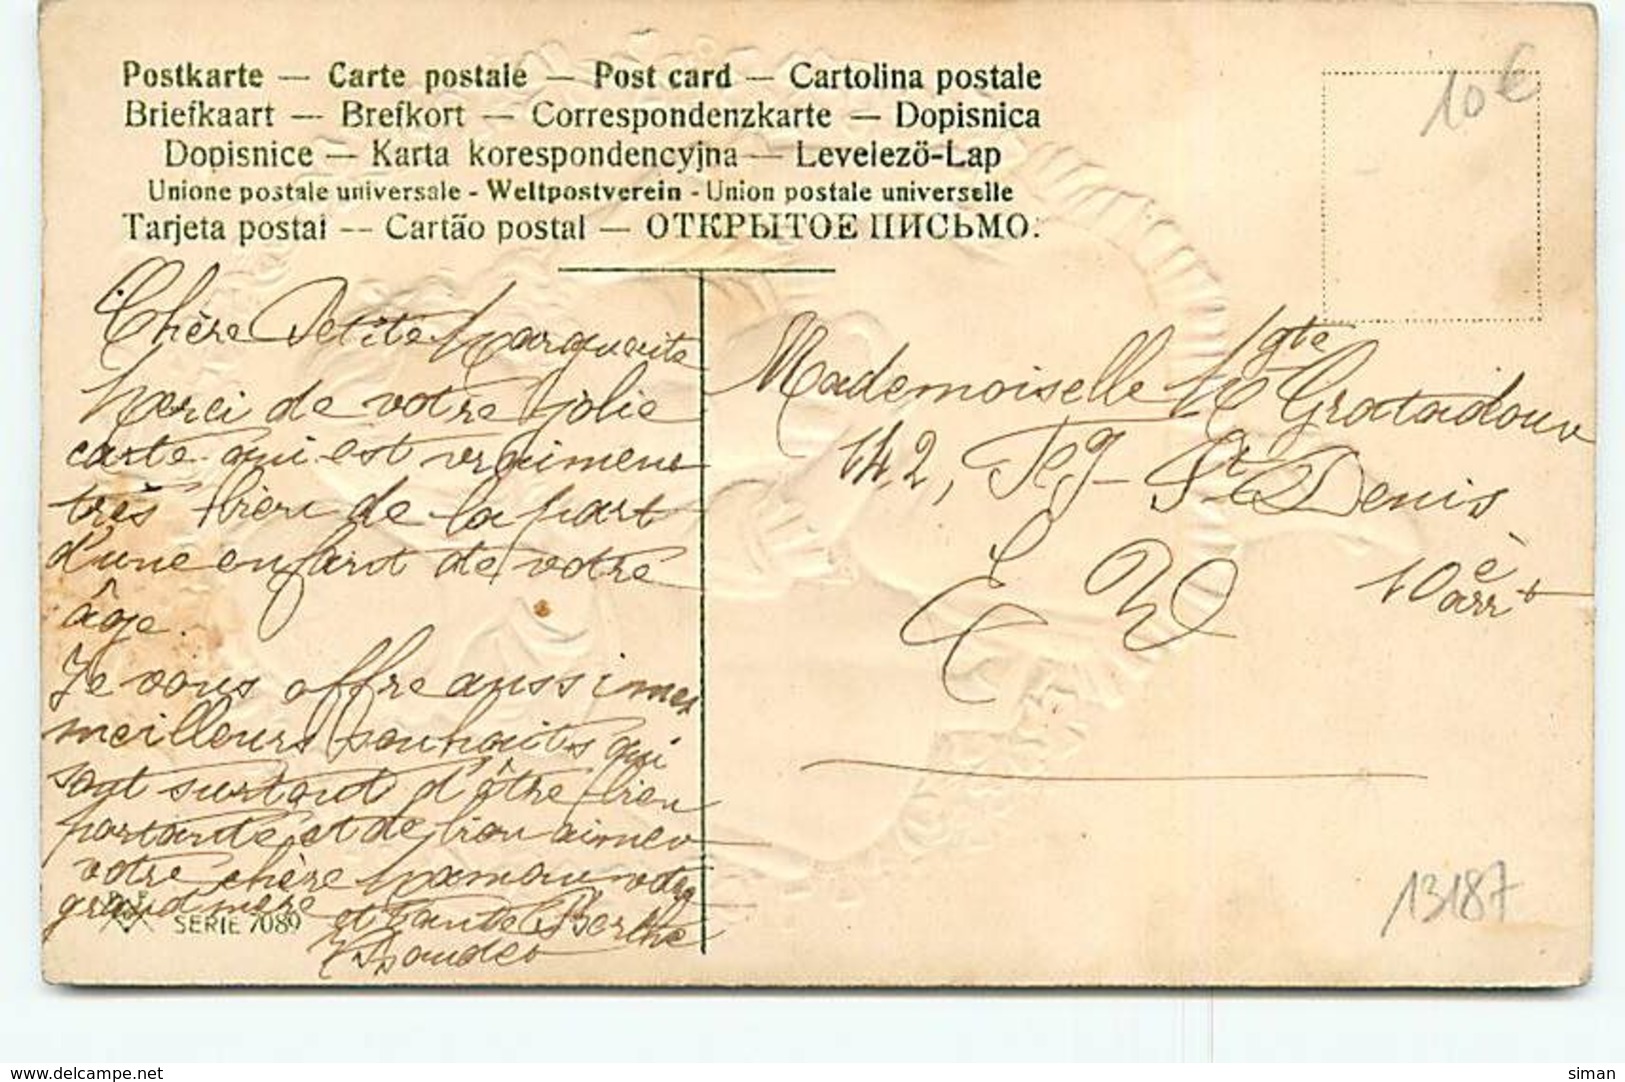 Postkarte — Carte postale — Post card — Cartolina postale
Briefkaart — Brefkort — Correspondenzkarte — Dopisnica
Dopisnice — Karta korespondencyjna — Levelezö-Lap
Unione postale universale - Weltpostverein - Union postale universelle
Tarjeta postal -- Cartão postal — ОТКРЫТОЕ ПИСЬМО.
10 €
Chère Petite Marguerite
Merci de votre jolie
carte qui est vraiment
très bien de la part
d'une enfant de votre
âge.
Je vous offre aussi mes
meilleurs souhaits qui
sont surtout d'être bien
portante et de bien aimer
votre chère Maman votre
grand mère et tante Berthe
SERIE 7089
Mademoiselle Mgte
142, Fg St Denis
E V 10è arrt
13187
delcampe.net
siman